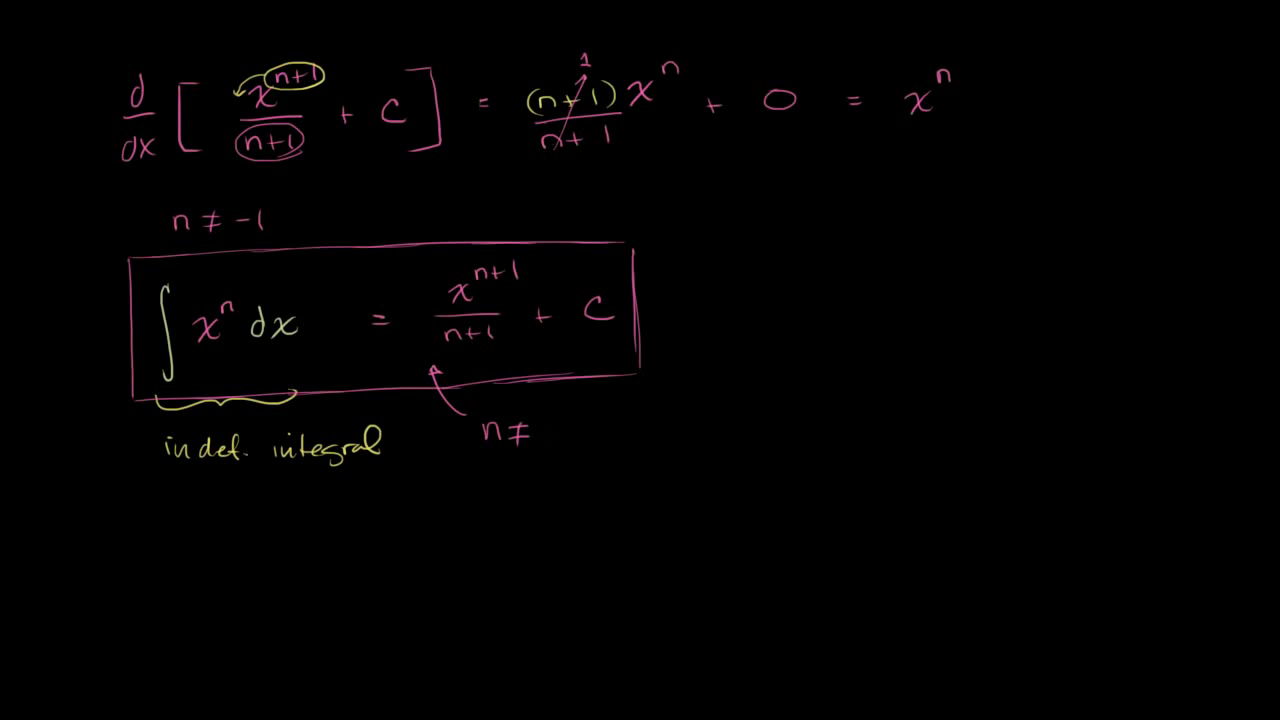 d/dx [ x^(n+1)/(n+1) + C ] = (n+1)x^n/(n+1) 1 + 0 = x^n
n ≠ -1
∫ x^n dx = x^(n+1)/(n+1) + C
indef. integral n ≠